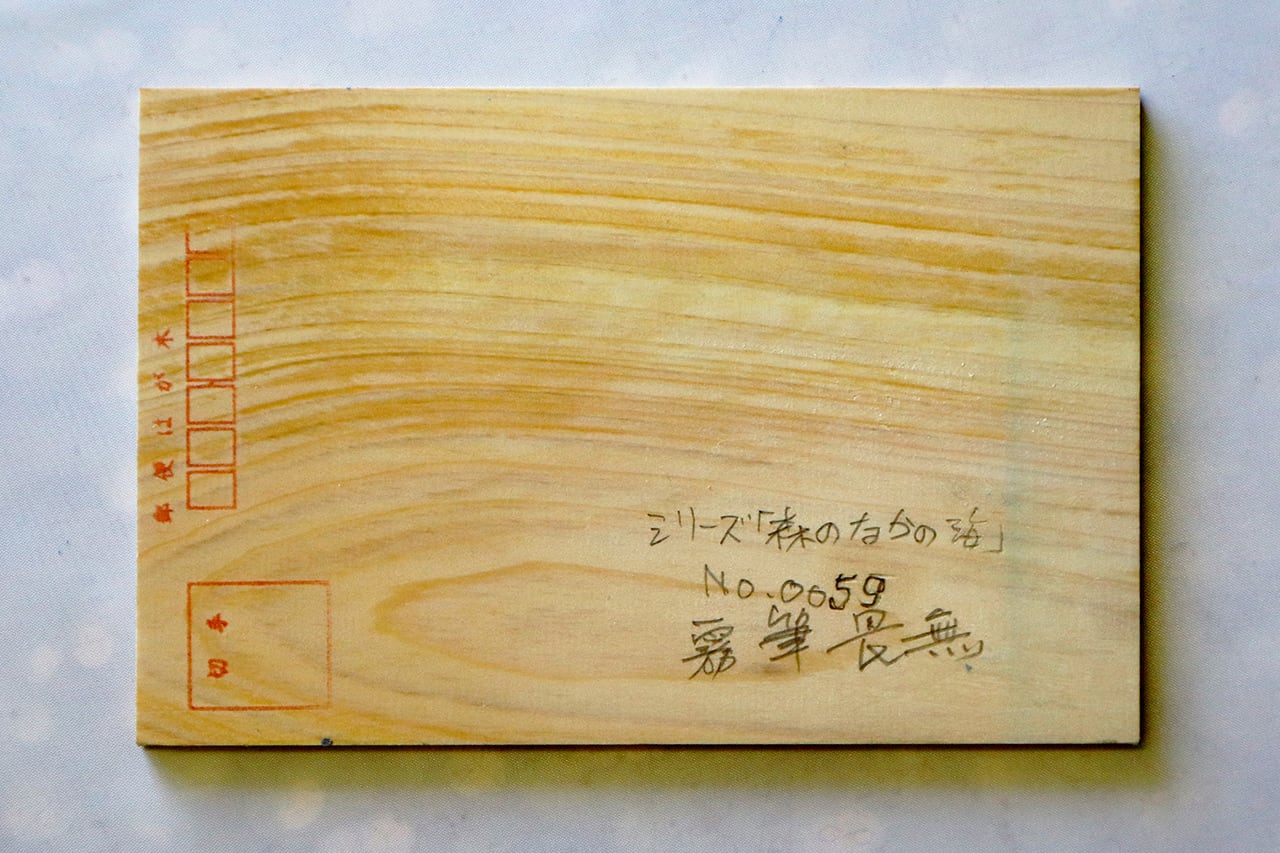 郵便はが木
切手
シリーズ「森のなかの海」
No.0059
霧筆 無